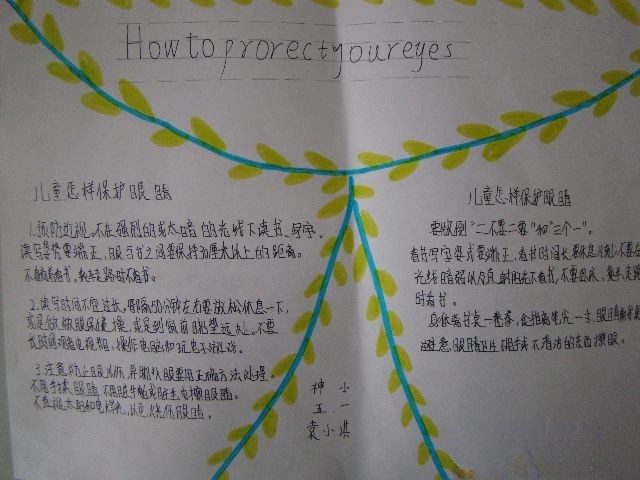 How to prorect your eyes
儿童怎样保护眼睛
1.预防近视。不在强烈的或太暗的光线下读书、写字。
读写姿势要端正,眼与书之间要保持30厘米以上的距离。
不躺着看书,乘车走路时不看书。
2.读写时间不宜过长。每隔50分钟左右要放松休息一下,
或是做做眼保健操,或是到窗前眺望远处。不要
长时间观看电视和操作电脑和玩电子游戏。
3.注意防止眼外伤,异物入眼要用正确方法处理。
不用手揉眼睛,不用脏手帕或脏毛巾擦眼睛。
不直视太阳和电焊光,以免烧伤眼睛。
神 小
五、一
袁小淇
儿童怎样保护眼睛
要做到"二不要二要"和"三个一"。
看书写字姿势要端正,看书时间长要休息片刻,不要在
光线暗弱以及直射阳光下看书,不要卧床、乘车、走
时看书。
身体离书桌一拳,食指离笔尖一寸,眼睛离书
避免眼睛 用手或不清洁的东西擦眼。